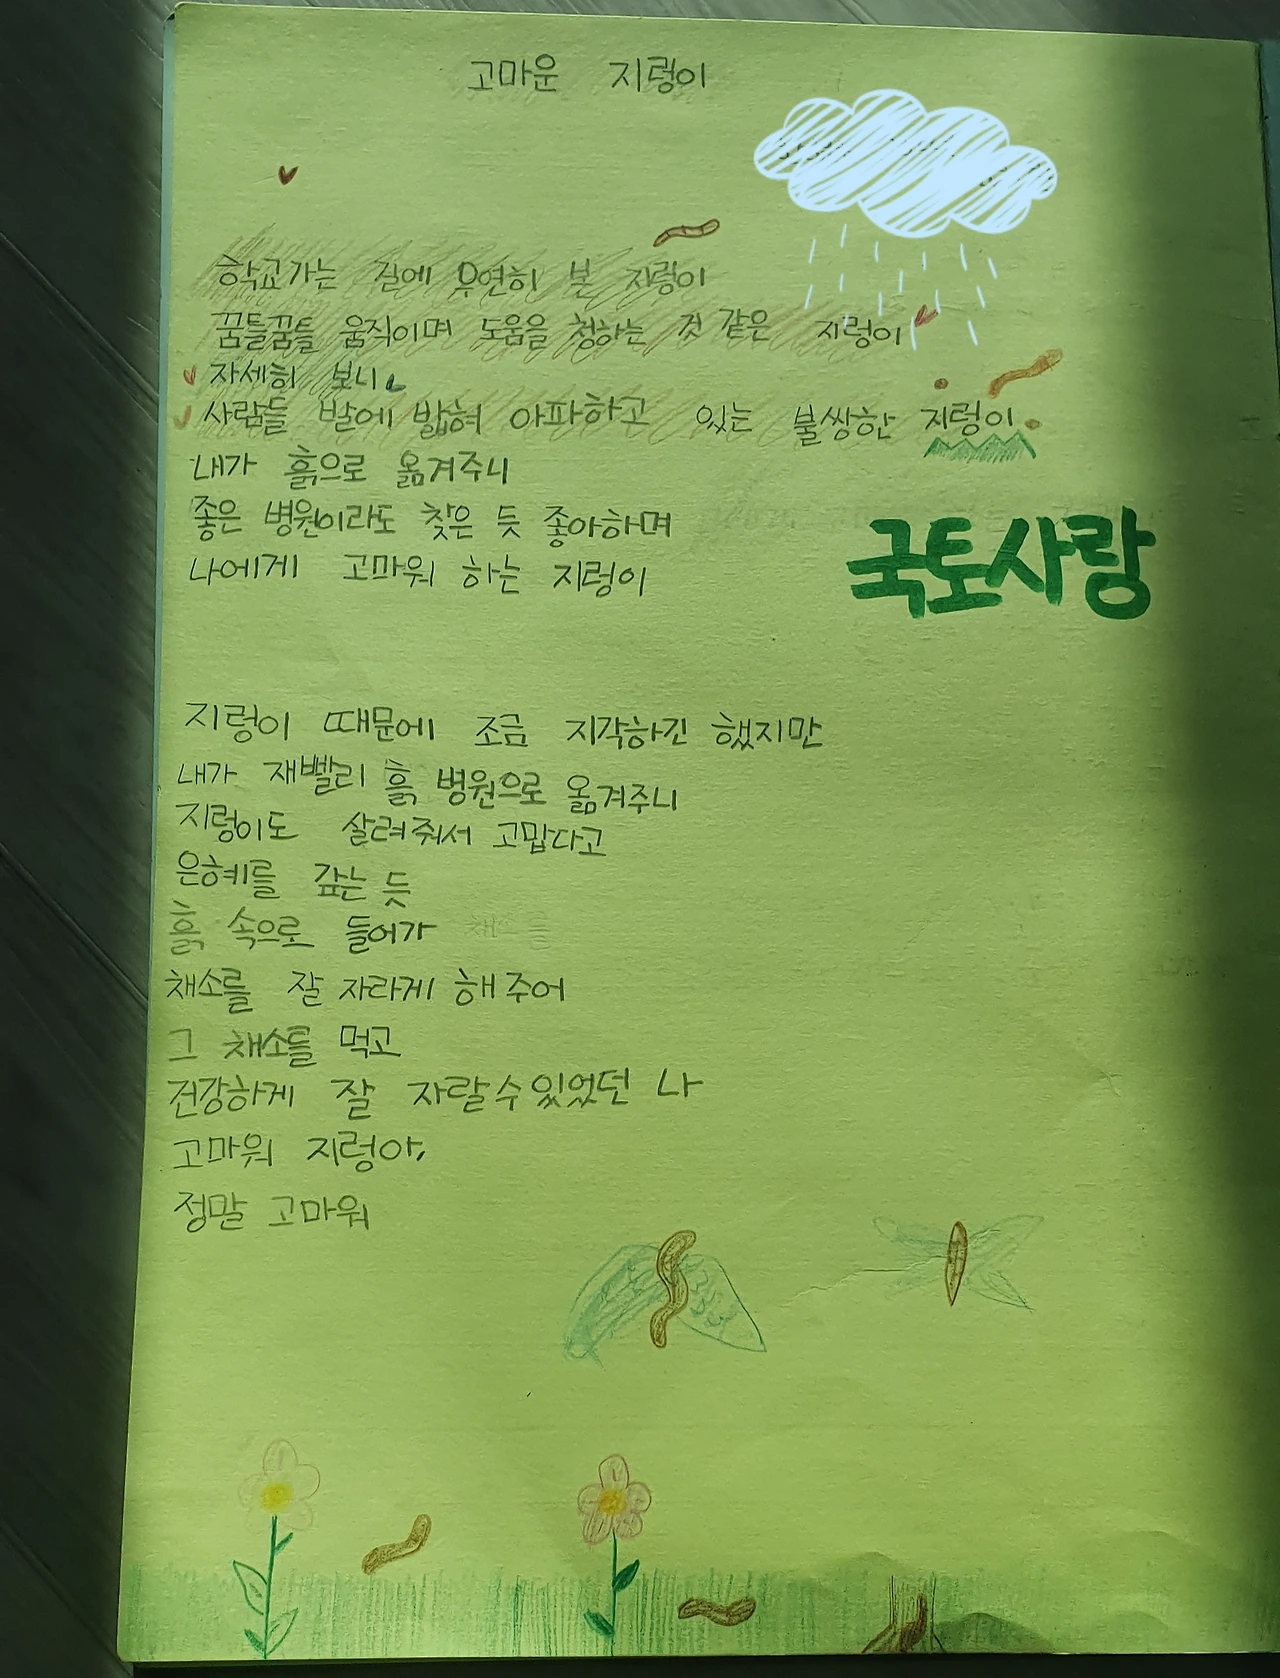 고마운 지렁이
학교가는 길에 우연히 본 지렁이
꿈틀꿈틀 움직이며 도움을 청하는 것 같은 지렁이
자세히 보니
사람들 발에 밟혀 아파하고 있는 불쌍한 지렁이
내가 흙으로 옮겨주니
좋은 병원이라도 찾은 듯 좋아하며
나에게 고마워 하는 지렁이
국토사랑
지렁이 때문에 조금 지각하긴 했지만
내가 재빨리 흙 병원으로 옮겨주니
지렁이도 살려줘서 고맙다고
은혜를 갚는 듯
흙 속으로 들어가
채소를 잘 자라게 해주어
그 채소를 먹고
건강하게 잘 자랄수있었던 나
고마워 지렁아,
정말 고마워